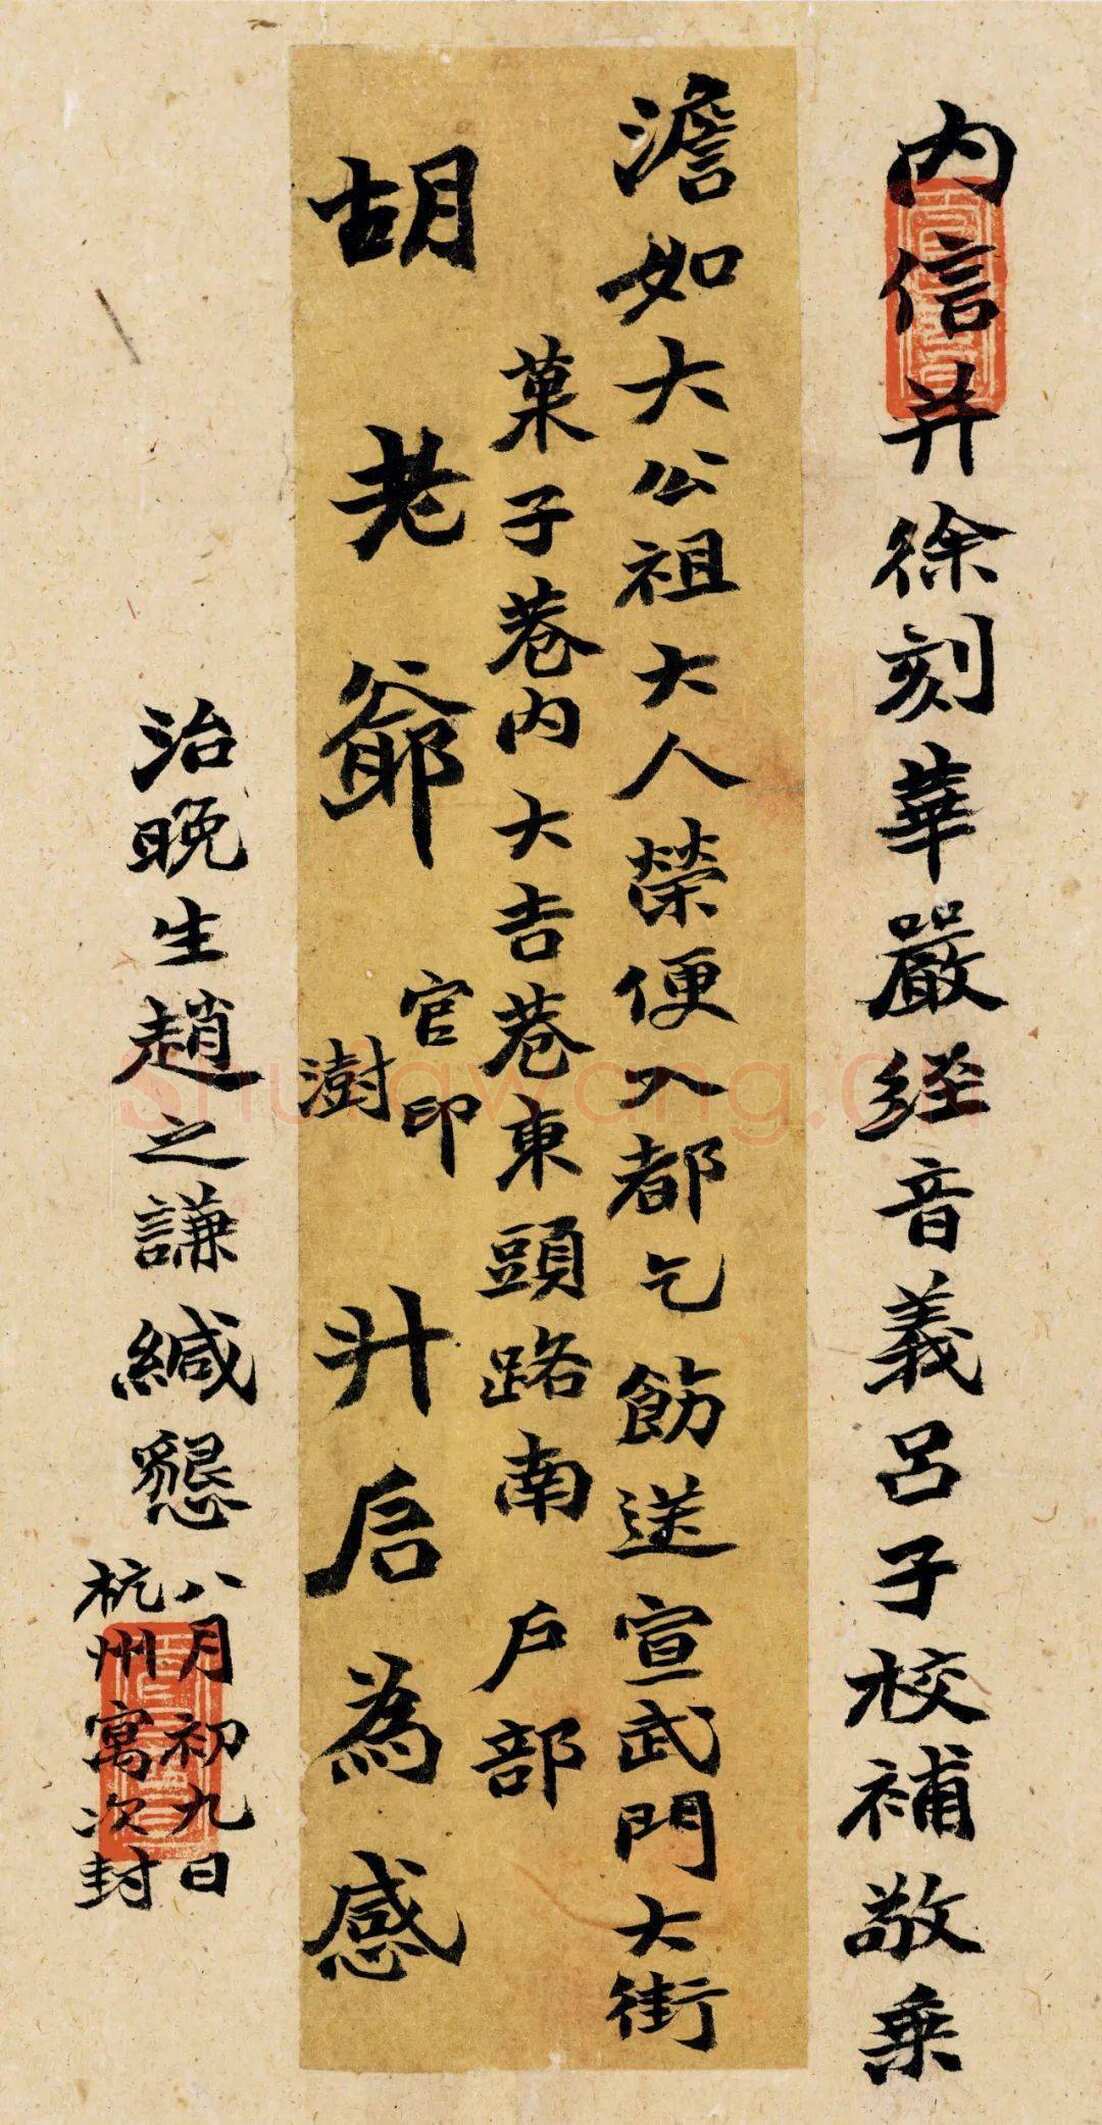 内信并徐刻華嚴經音義呂子校補敬乘
澹如大公祖大人榮便入都乞飭送宣武門大街
菓子巷内大吉巷東頭路南戶部
胡老爺官印澍升启為感
治晚生趙之謙緘懇
八月初九日
杭州寓次封